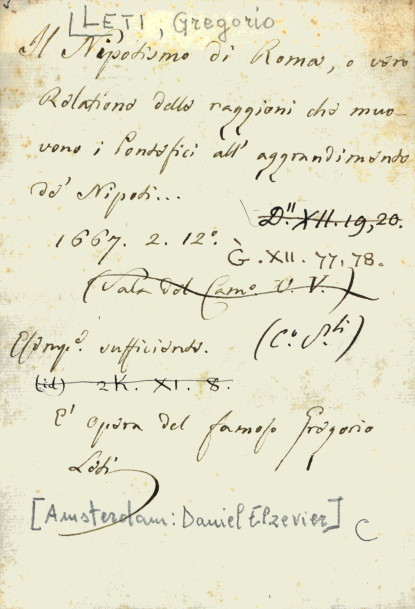 LLETI, Gregorio
Il Nipotismo di Roma, o vero
Relatione delle raggioni che muo-
vono i Pontefici all' aggrandimento
de' Nipoti...
D." XII. 19, 20.
1667. 2. 12.º
G̀. XII. 77, 78.
(Sala del Camº. V. V.)
Esemp.º sufficiente.
(Cº. S.ti)
(id) 2K. XI. 8.
E' opera del famoso Gregorio
Leti
[Amsterdam: Daniel Elzevier] C